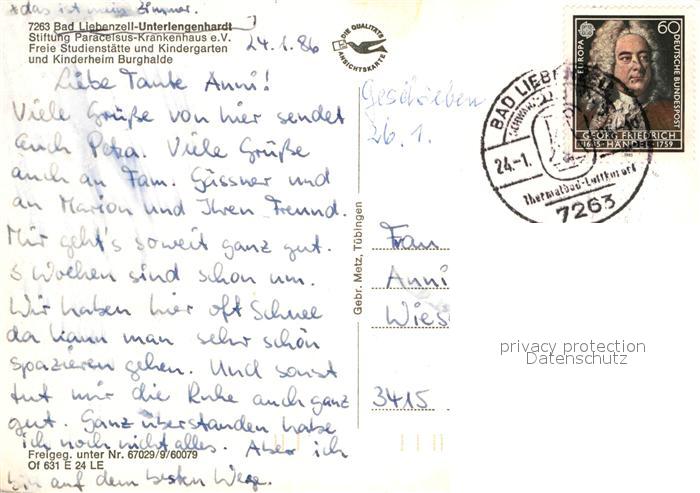 * das ist mein Zimmer.
7263 Bad Liebenzell-Unterlengenhardt
Stiftung Paracelsus-Krankenhaus e.V.
Freie Studienstätte und Kindergarten
und Kinderheim Burghalde
24.1.86
DIE QUALITÄTS
ANSICHTSKARTE
Liebe Tante Anni!
Viele Grüße von hier sendet
auch Petra. Viele Grüße
auch an Fam. Gässner und
an Marion und Ihren Freund.
Mir geht's soweit ganz gut.
3 Wochen sind schon um.
Wir haben hier oft Schnee
da kann man sehr schön
spazieren gehen. Und sonst
tut mir die Ruhe auch ganz
gut. Ganz überstanden habe
ich noch nicht alles. Aber ich
bin auf dem besten Wege.
Freigeg. unter Nr. 67029/9/60079
Of 631 E 24 LE
Gebr. Metz, Tübingen
Geschrieben
26.1.
EUROPA
60
DEUTSCHE BUNDESPOST
GEORG FRIEDRICH
1685 - HÄNDEL - 1759
BAD LIEBENZELL
24.-1.
Thermalbad-Luftkurort
7263
Frau
Anni
Wies
3415
privacy protection
Datenschutz